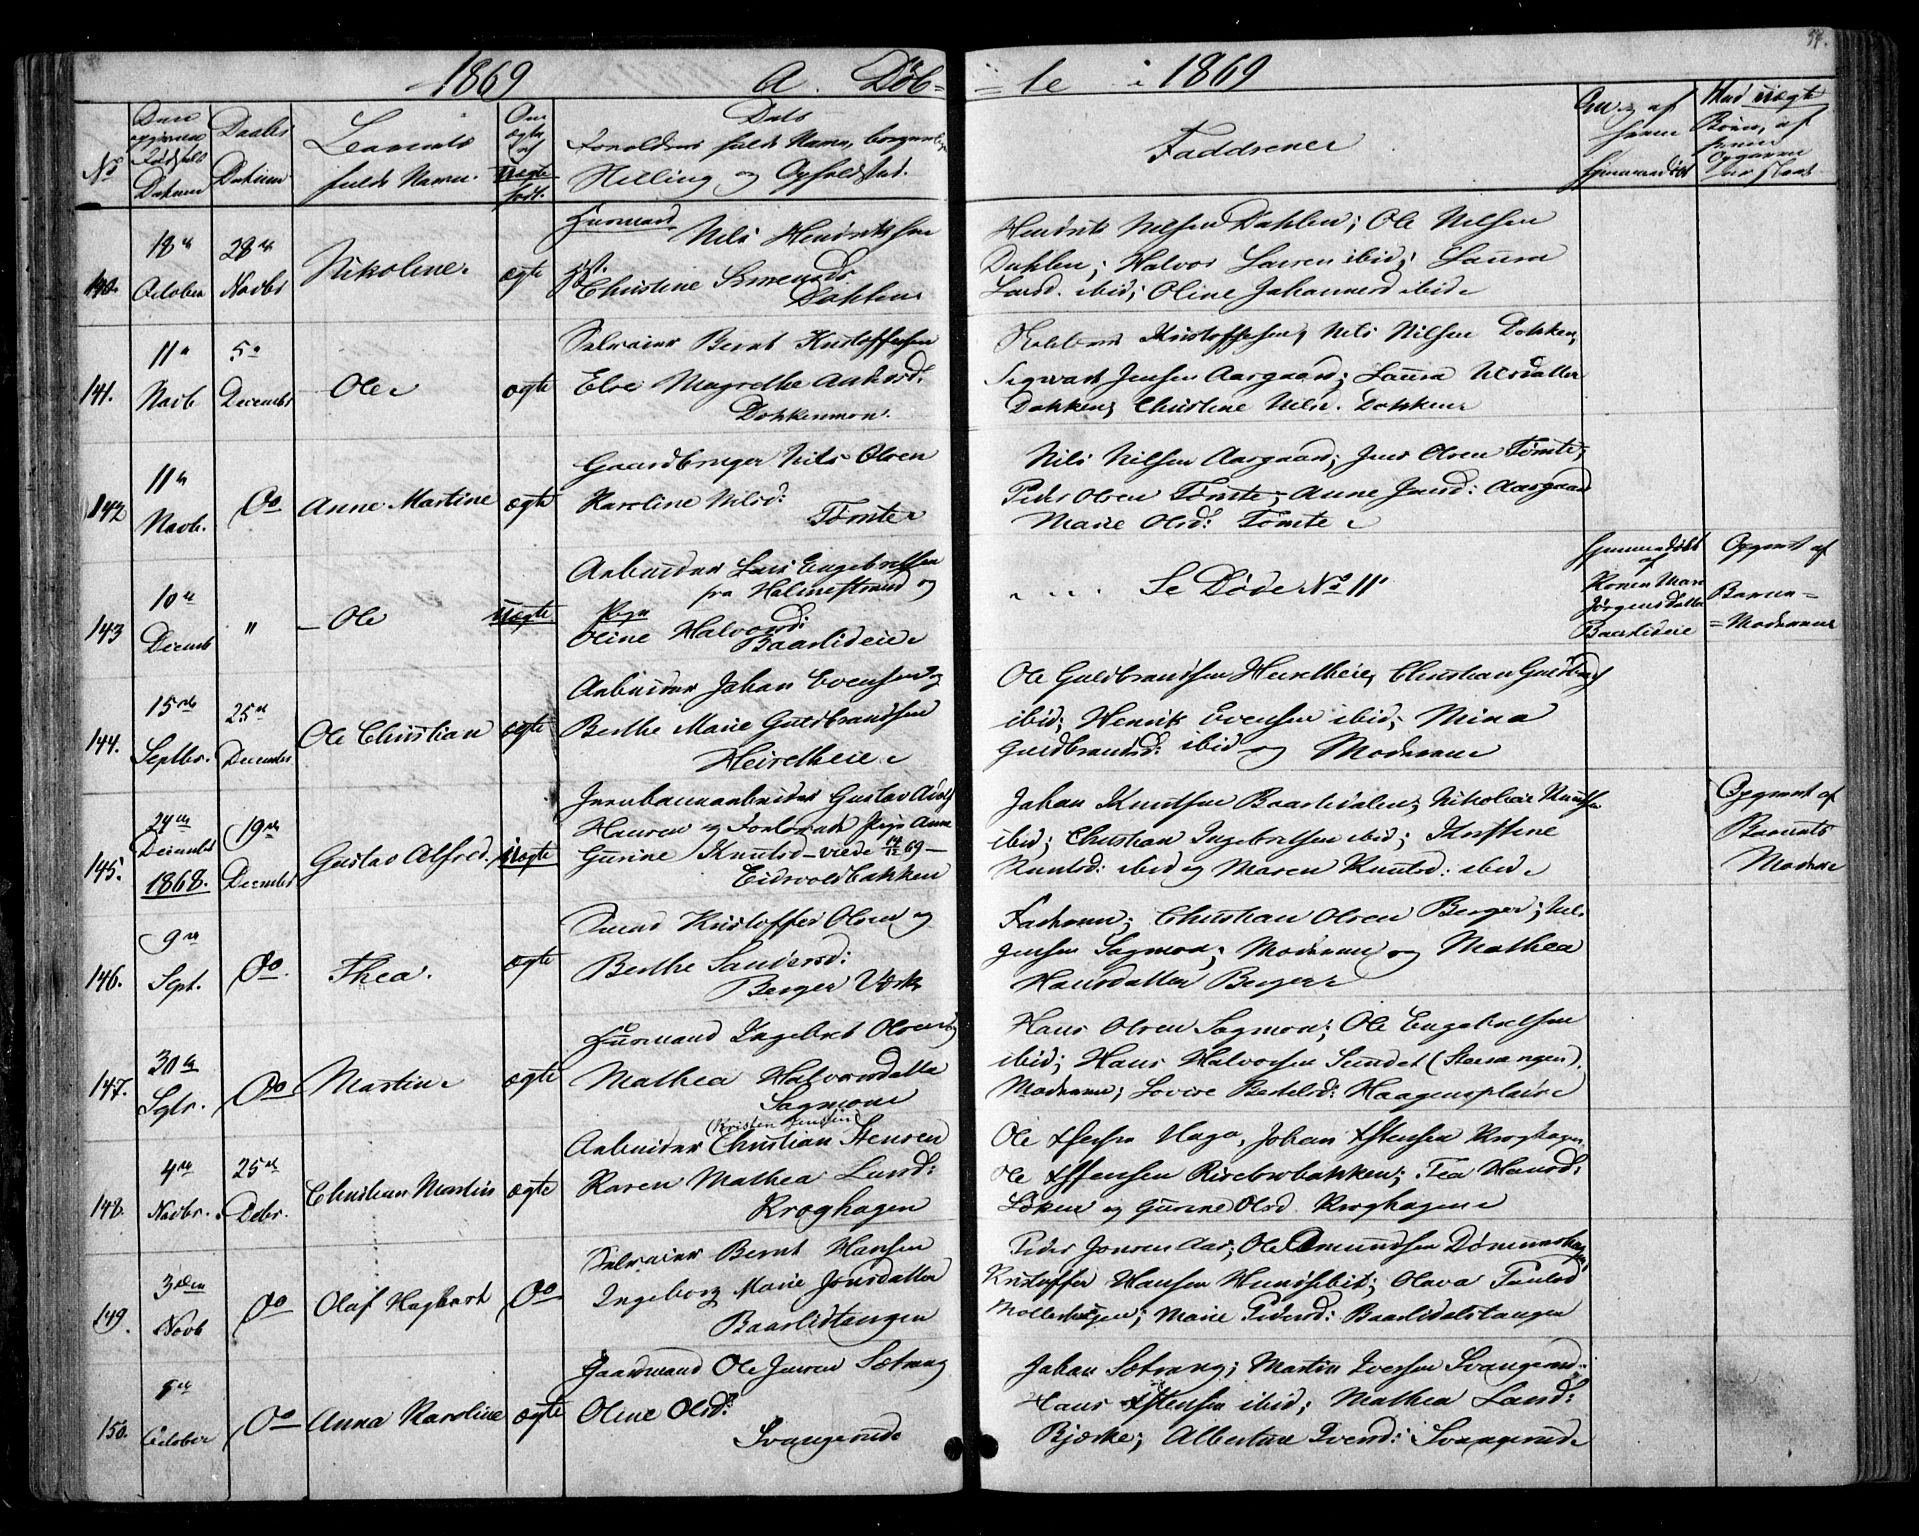 1869 A. Døb=
=te i 1869
No
Datum
Daabs
Datum
Barnets
fulde Navn.
Om
ægte
el
uægte
født.
Dets
Forældres fulde Navn, borgerlige
Stilling og Opholdsted.
Faddrene
Hjemmedøbt
140. 18de October 28de Novbr Nikoline ægte Huusmand Nils Hendriksen
Christine
Dahlen
Hendrik Nilsen Dahlen; Ole Nilsen
Dahlen; Halvor Larsen ibid; Laura
Larsd. ibid; Oline Johannesd ibid
141. 11te Novb 5te Decembr Ole ægte Selveier Bernt Kristoffersen
Else Magrethe
Dokkenmoen.
Kristoffersen, Nils Nilsen Dokken;
Sigvart Jensen Aargaard; Laura
Dokken; Christine Nilsd. Dokken
142 11te Novb. Do Anne Martine ægte Gaardbruger Nils Olsen
Karoline Nilsd:
Tømte
Nils Nilsen Aargaard; Jens Olsen Tømte;
Peder Olsen Tømte; Anne Jensd: Aargaard
Marie Olsd: Tømte
143 10de Decemb " Ole uægte Arbeider Lars Engebretsen
fra Holmestrand og
Pige
Oline Halvorsd:
Baarlideie
Se Døde No 11
Hjemmedøbt
af
Konen Mari
Jørgensdatter
Baarlideie
Opgivet af
Barne=
=Moderen
144. 15de Septbr. 25de Decembr Ole Christian ægte Arbeider Johan Evensen og
Berthe Marie Guldbrandsen
Heiretheie
Ole Guldbrandsen Heiretheie, Christian Guldbrands
ibid; Henrik Evensen ibid; Mina
Guldbrandsd: ibid og Moderen
145. 24de Decembr 1868. 19de Decembr Gustav Alfred. uægte Jernbanearbeider Gustav Adolf
Hansen og Forlovede Pige Anne
Gurine Knutsd – viede 69 –
Eidsvoldbakken
Johan Knutsen Baarlidalen; Nikolai Knutsen
ibid; Christian Ingebretsen ibid; Kristine
Knutsd: ibid og Maren Knutsd: ibid
Opgivet af
Barnets
Moder
146. 9de Sept. Do Thea. ægte Smed Kristoffer Olsen og
Berthe Sandersd:
Berger Værk
Faderen; Christian Olsen Berger;
Jensen Sagmoen; Moderen og Mathea
Hansdatter Berger
147. 30te Do Martin ægte Huusmand Ingebret Olsen og
Mathea Halvorsdatter
Sagmoen
Hans Olsen Sagmoen; Ole Engebretsen
ibid; Hans Halvorsen Sundet (Storsangen).
Moderen; Lovise Bertelsd: Haagensplads
148. 4de Novbr. 25de Debr. Christian Martin ægte Arbeider Christian Stensen
Karen Mathea Larsd:
Kroghagen
Ole Haga, Johan Kroghagen
Ole Risebrobakken; Tea Hansd:
Løken og Gurine Olsd. Kroghagen
149. 3den Novb Do Olaf Hagbart Do Selveier Bernt Hansen
Ingeborg Marie Jonsdatter
Baarlidtangen
Peder Jonsen Aas; Ole Amundsen
Kristoffer Hansen Hundsebit; Olava
Møllerhagen; Marie Pedersd: Baarlidalstangen
150. October Do Anna Karoline ægte Gaardmand Ole Jensen Sætrang
Oline Olsd:
Svangerud
Johan Sætrang; Martin Iversen Svangerud
Hans ibid; Mathea Larsd:
Bjærke; Albertine Iversd: Svangerud